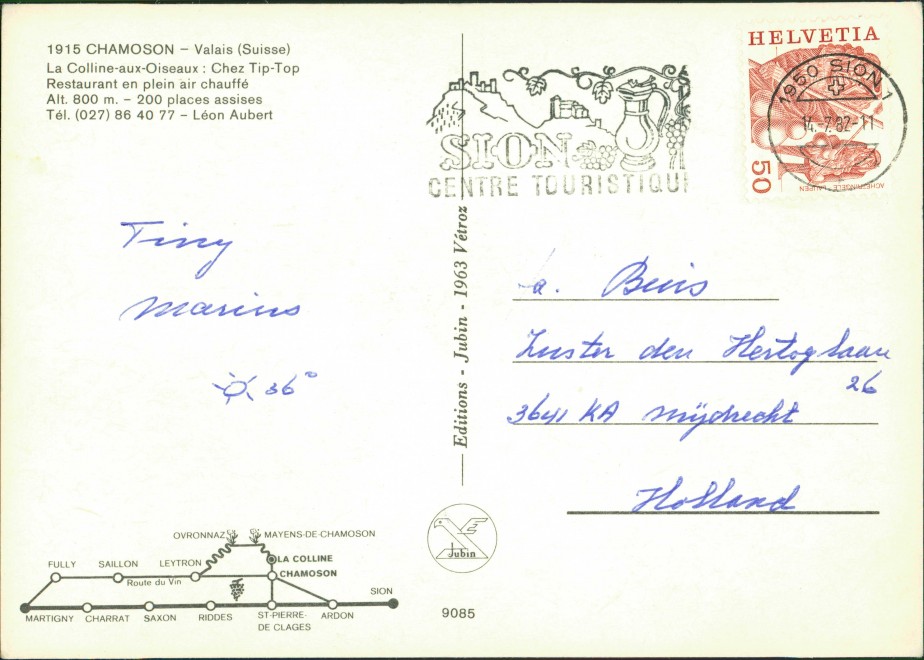 1915 CHAMOSON – Valais (Suisse)
La Colline-aux-Oiseaux : Chez Tip-Top
Restaurant en plein air chauffé
Alt. 800 m. – 200 places assises
Tél. (027) 86 40 77 – Léon Aubert
SION
CENTRE TOURISTIQUE
HELVETIA
50
ACHETRINGELE - LAUPEN
1950 SION 1
14.-7.82-11
Tiny
Marius
36°
Editions - Jubin - 1963 Vétroz
a. Buis
Zuster den Hertoglaan
26
3641 KA Mijdrecht
Holland
Jubin
OVRONNAZ
MAYENS-DE-CHAMOSON
LA COLLINE
FULLY SAILLON LEYTRON
CHAMOSON
Route du Vin
SION
MARTIGNY CHARRAT SAXON RIDDES ST-PIERRE-DE CLAGES ARDON
9085